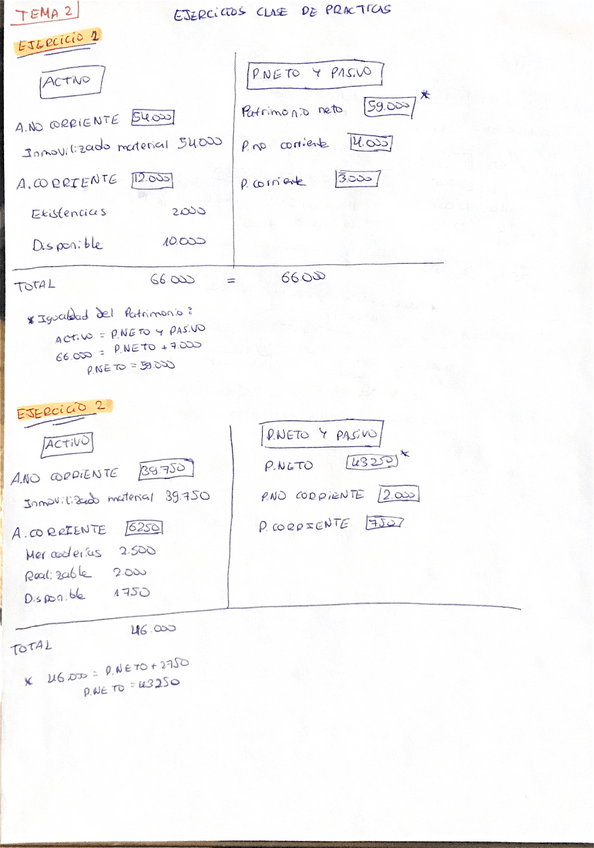 TEMA 2
EJERCICIOS CLASE DE PRACTICAS
EJERCICIO 1
ACTIVO
A.NO CORRIENTE 54.000
Inmovilizado material 54.000
A.CORRIENTE 12.000
Existencias 2.000
Disponible 10.000
P.NETO Y PASIVO
Patrimonio neto 59.000 *
P.no corriente 4.000
P.corriente 3.000
TOTAL 66.000 = 66.000
* Igualdad del Patrimonio:
ACTIVO = P.NETO Y PASIVO
66.000 = P.NETO + 7.000
P.NETO = 59.000
EJERCICIO 2
ACTIVO
A.NO CORRIENTE 39.750
Inmovilizado material 39.750
A.CORRIENTE 6250
Mercaderías 2.500
Realizable 2.000
Disponible 1750
P.NETO Y PASIVO
P.NETO 43250 *
P.NO CORRIENTE 2.000
P.CORRIENTE 750
TOTAL 46.000
* 46.000 = P.NETO + 2750
P.NETO = 43250